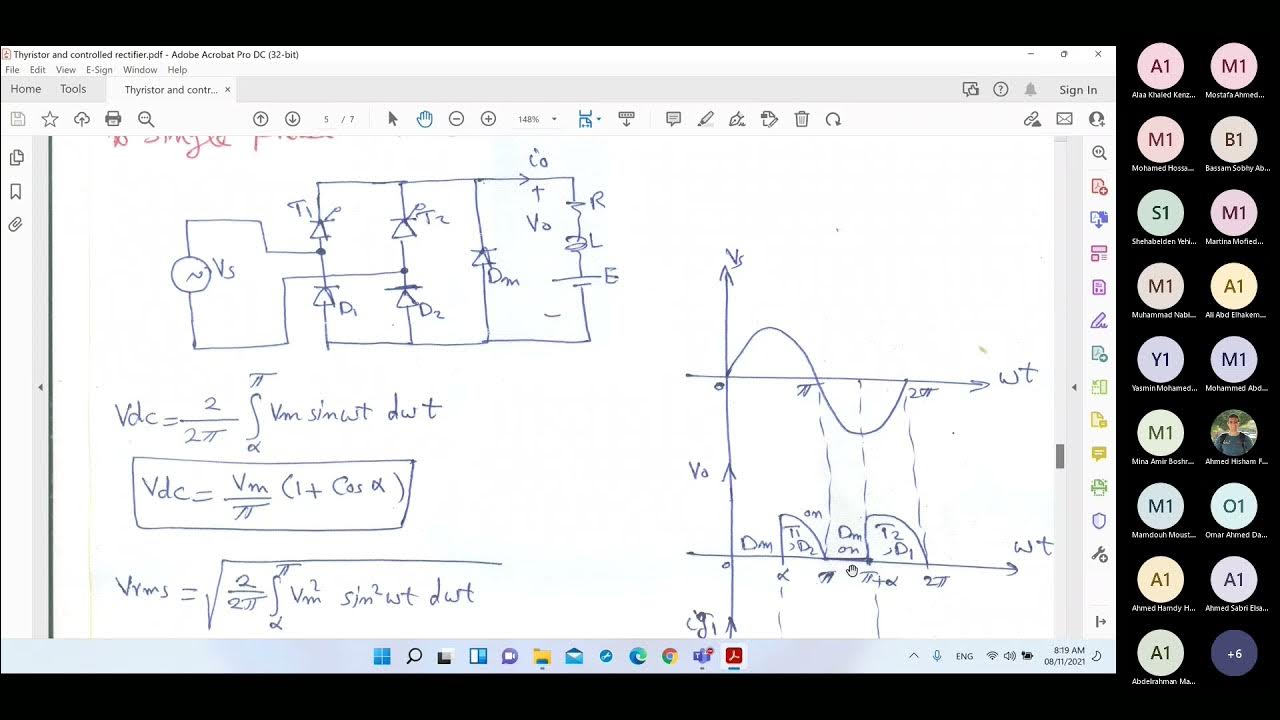 Thyristor and controlled rectifier.pdf - Adobe Acrobat Pro DC (32-bit)
File Edit View E-Sign Window Help
Home Tools Thyristor and contr... × Sign In
5 / 7 148%
single
io
T1 T2 + R
Vo
Vs L
Dm E
D1 D2 −
Vdc = 2/2π ∫α^π Vm sinωt dωt
Vdc = Vm/π (1 + Cos α)
Vrms = √(2/2π ∫α^π Vm² sin²ωt dωt
Vs
0 π 2π ωt
Vo
Dm T1, D2 on Dm on T2, D1
0 α π π+α 2π ωt
ig1
ENG 8:19 AM
08/11/2021
A1 M1
Alaa Khaled Kenz... Mostafa Ahmed...
M1 B1
Mohamed Hossa... Bassam Sobhy Ab...
S1 M1
Shehabelden Yehi... Martina Mofied...
M1 A1
Muhammad Nabi... Ali Abd Elhakem...
Y1 M1
Yasmin Mohamed... Mohammed Abd...
M1
Mina Amir Boshr... Ahmed Hisham F...
M1 O1
Mamdouh Moust... Omar Ahmed Da...
A1 A1
Ahmed Hamdy H... Ahmed Sabri Elsa...
A1 +6
Abdelrahman Ma...